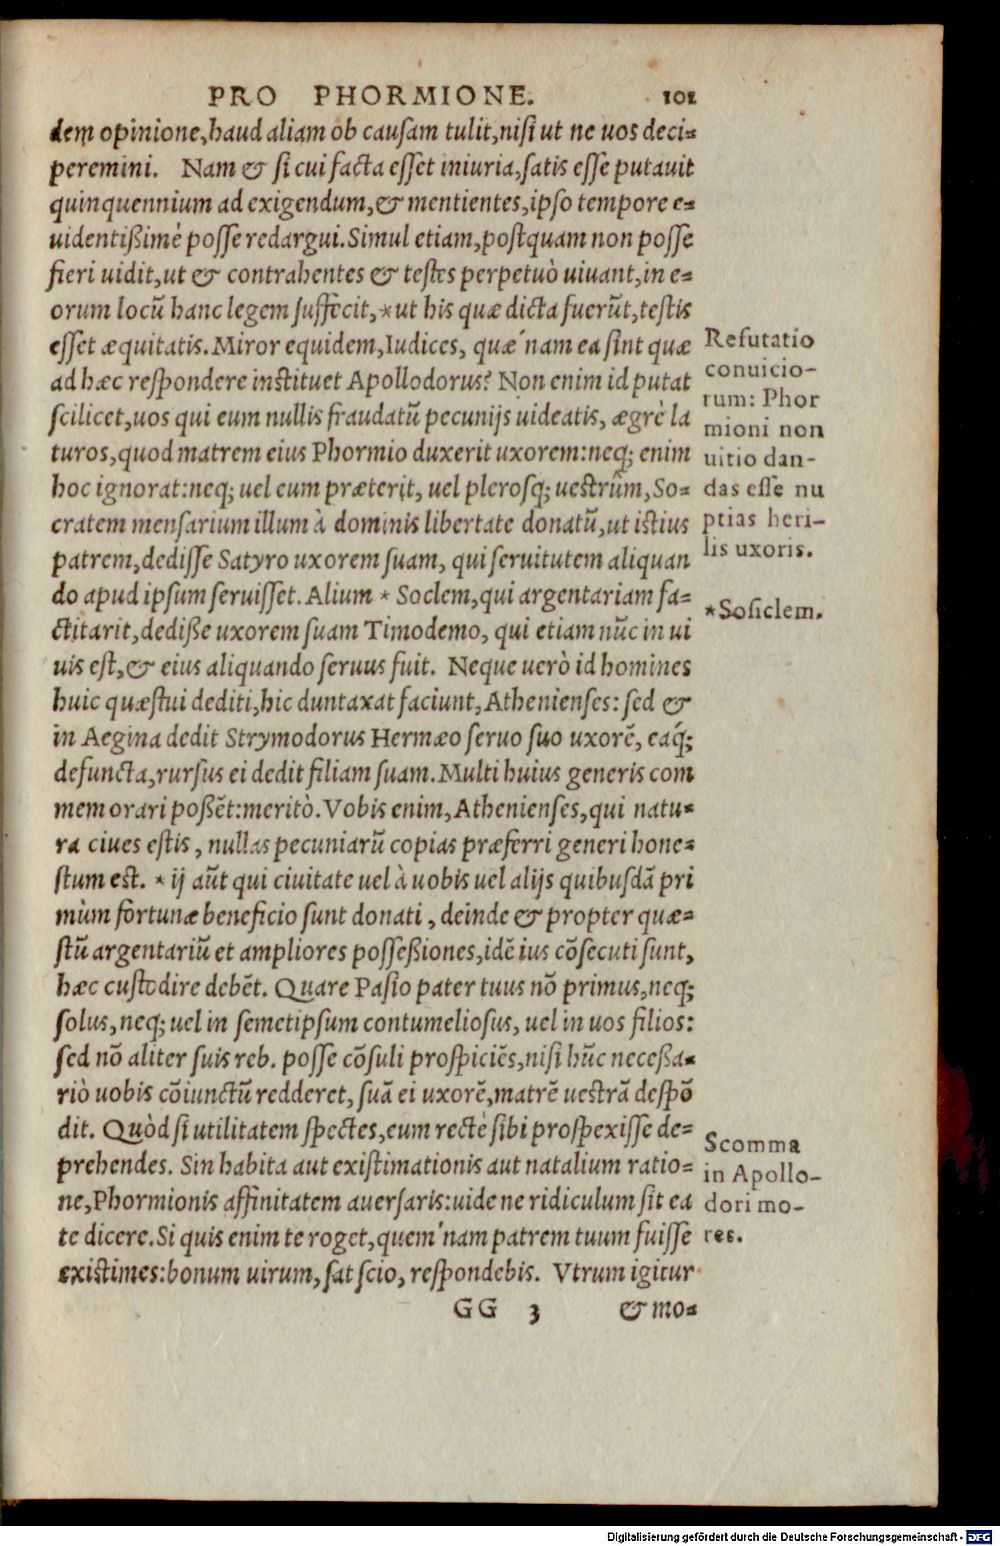 PRO PHORMIONE. 101
dem opinione, haud aliam ob causam tulit, nisi ut ne uos deci-
peremini. Nam & si cui facta esset iniuria, satis esse putauit
quinquennium ad exigendum, & mentientes, ipso tempore e-
uidentißimè posse redargui. Simul etiam, postquam non posse
fieri uidit, ut & contrahentes & testes perpetuò uiuant, in e-
orum locū hanc legem suffecit, * ut his quæ dicta fuerūt, testis
esset æquitatis. Miror equidem, Iudices, quæ´nam ea sint quæ
ad hæc respondere instituet Apollodorus? Non enim id putat
scilicet, uos qui eum nullis fraudatū pecunijs uideatis, ægrè la
turos, quod matrem eius Phormio duxerit uxorem: neq; enim
hoc ignorat: neq; uel eum præterit, uel plerosq; uestrûm, So-
cratem mensarium illum à dominis libertate donatū, ut istius
patrem, dedisse Satyro uxorem suam, qui seruitutem aliquan
do apud ipsum seruisset. Alium * Soclem, qui argentariam fa-
ctitarit, dediße uxorem suam Timodemo, qui etiam nūc in ui
uis est, & eius aliquando seruus fuit. Neque uerò id homines
huic quæstui dediti, hic duntaxat faciunt, Athenienses: sed &
in Aegina dedit Strymodorus Hermæo seruo suo uxorē, eáq;
defuncta, rursus ei dedit filiam suam. Multi huius generis com
memorari poßēt: meritò. Vobis enim, Athenienses, qui natu-
ra ciues estis, nullas pecuniarū copias præferri generi hone-
stum est. * ij aūt qui ciuitate uel à uobis uel alijs quibusdā pri
mùm fortunæ beneficio sunt donati, deinde & propter quæ-
stū argentariū et ampliores posseßiones, idē ius cōsecuti sunt,
hæc custodire debēt. Quare Pasio pater tuus nō primus, neq;
solus, neq; uel in semetipsum contumeliosus, uel in uos filios:
sed nō aliter suis reb. posse cōsuli prospiciēs, nisi hūc neceßa-
riò uobis cōiunctū redderet, suā ei uxorē, matrē uestrā despō
dit. Quòd si utilitatem spectes, eum rectè sibi prospexisse de-
prehendes. Sin habita aut existimationis aut natalium ratio-
ne, Phormionis affinitatem auersaris: uide ne ridiculum sit ea
te dicere. Si quis enim te roget, quem´nam patrem tuum fuisse
existimes: bonum uirum, sat scio, respondebis. Vtrum igitur
GG 3 & mo-
Refutatio
conuicio-
rum: Phor
mioni non
uitio dan-
das esse nu
ptias heri-
lis uxoris.
*Sosiclem.
Scomma
in Apollo-
dori mo-
res.
Digitalisierung gefördert durch die Deutsche Forschungsgemeinschaft - DFG